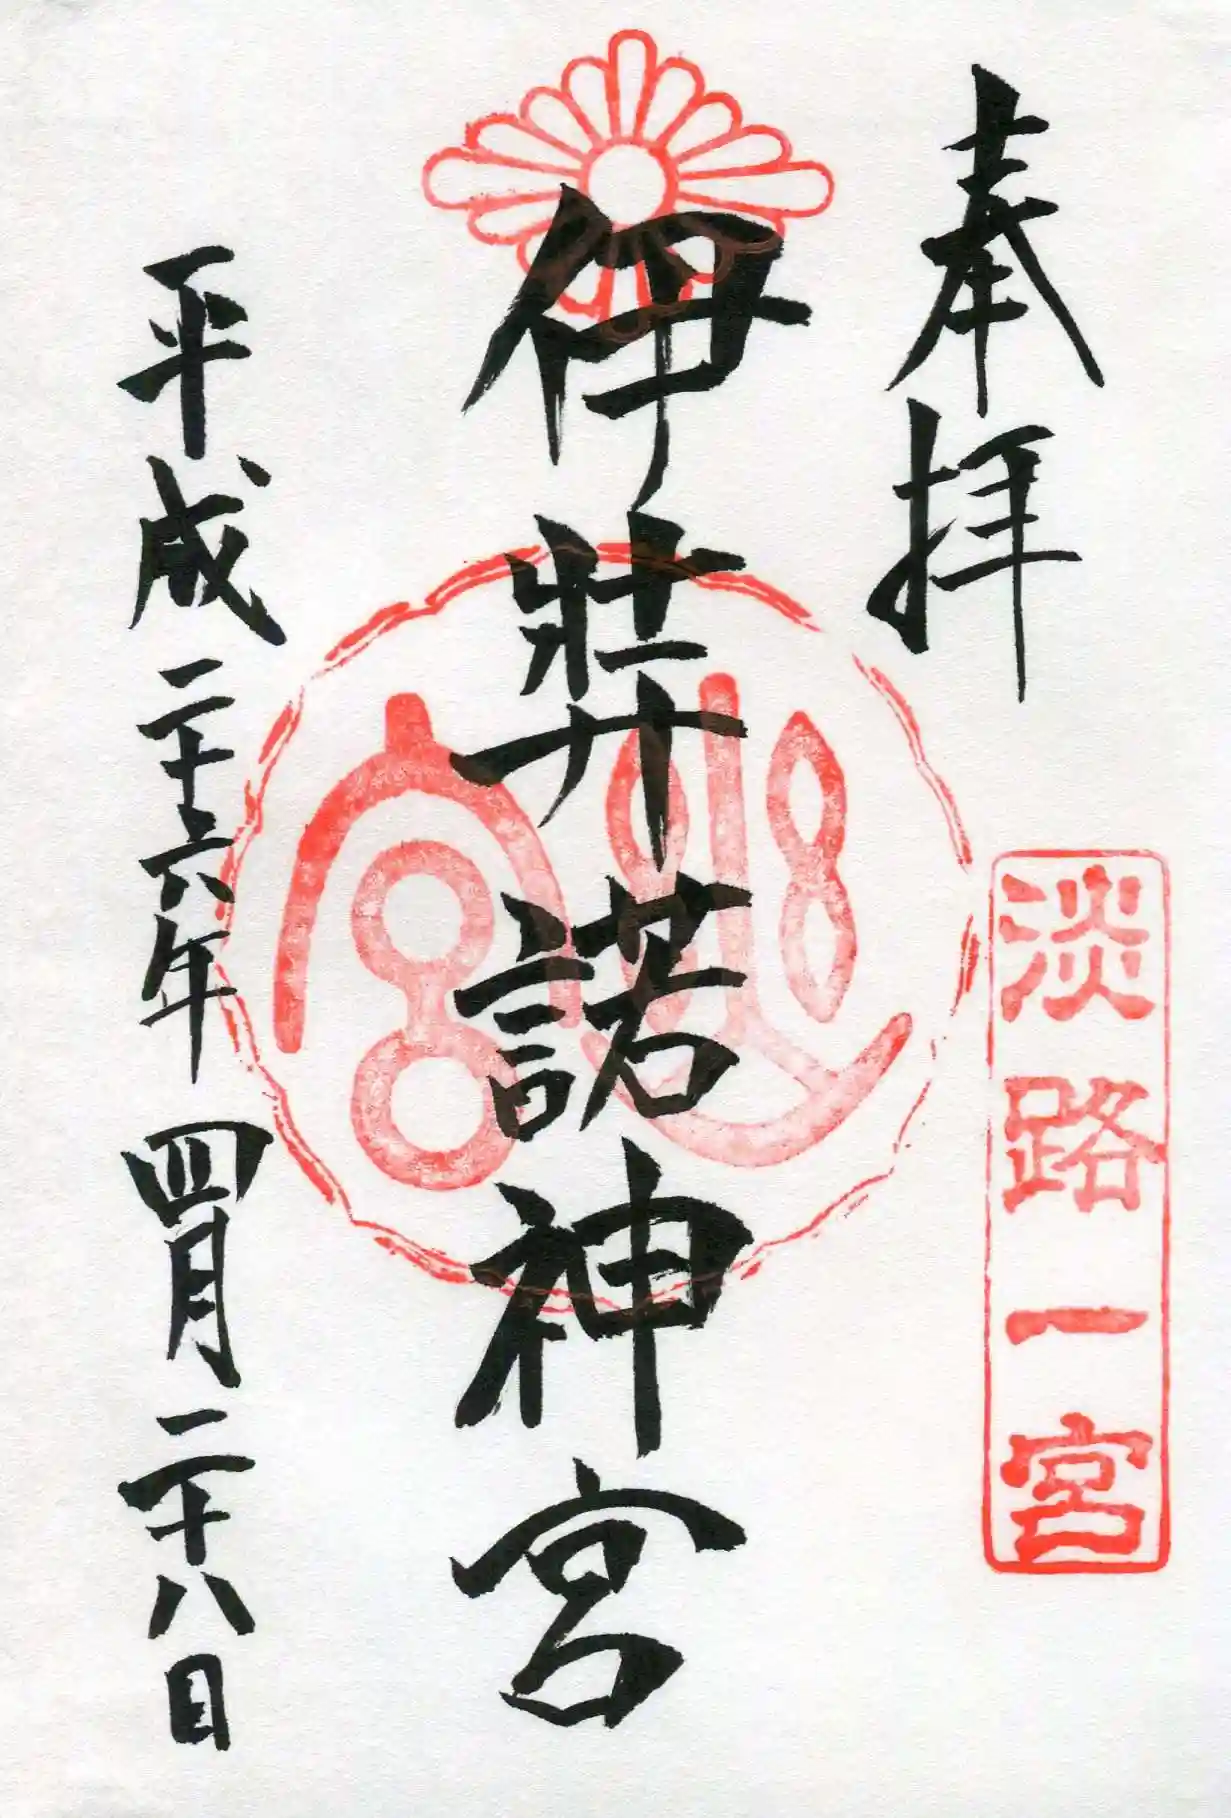 奉拝
淡路一宮
伊弉諾神宮
幽宮
平成二十六年四月二十八日